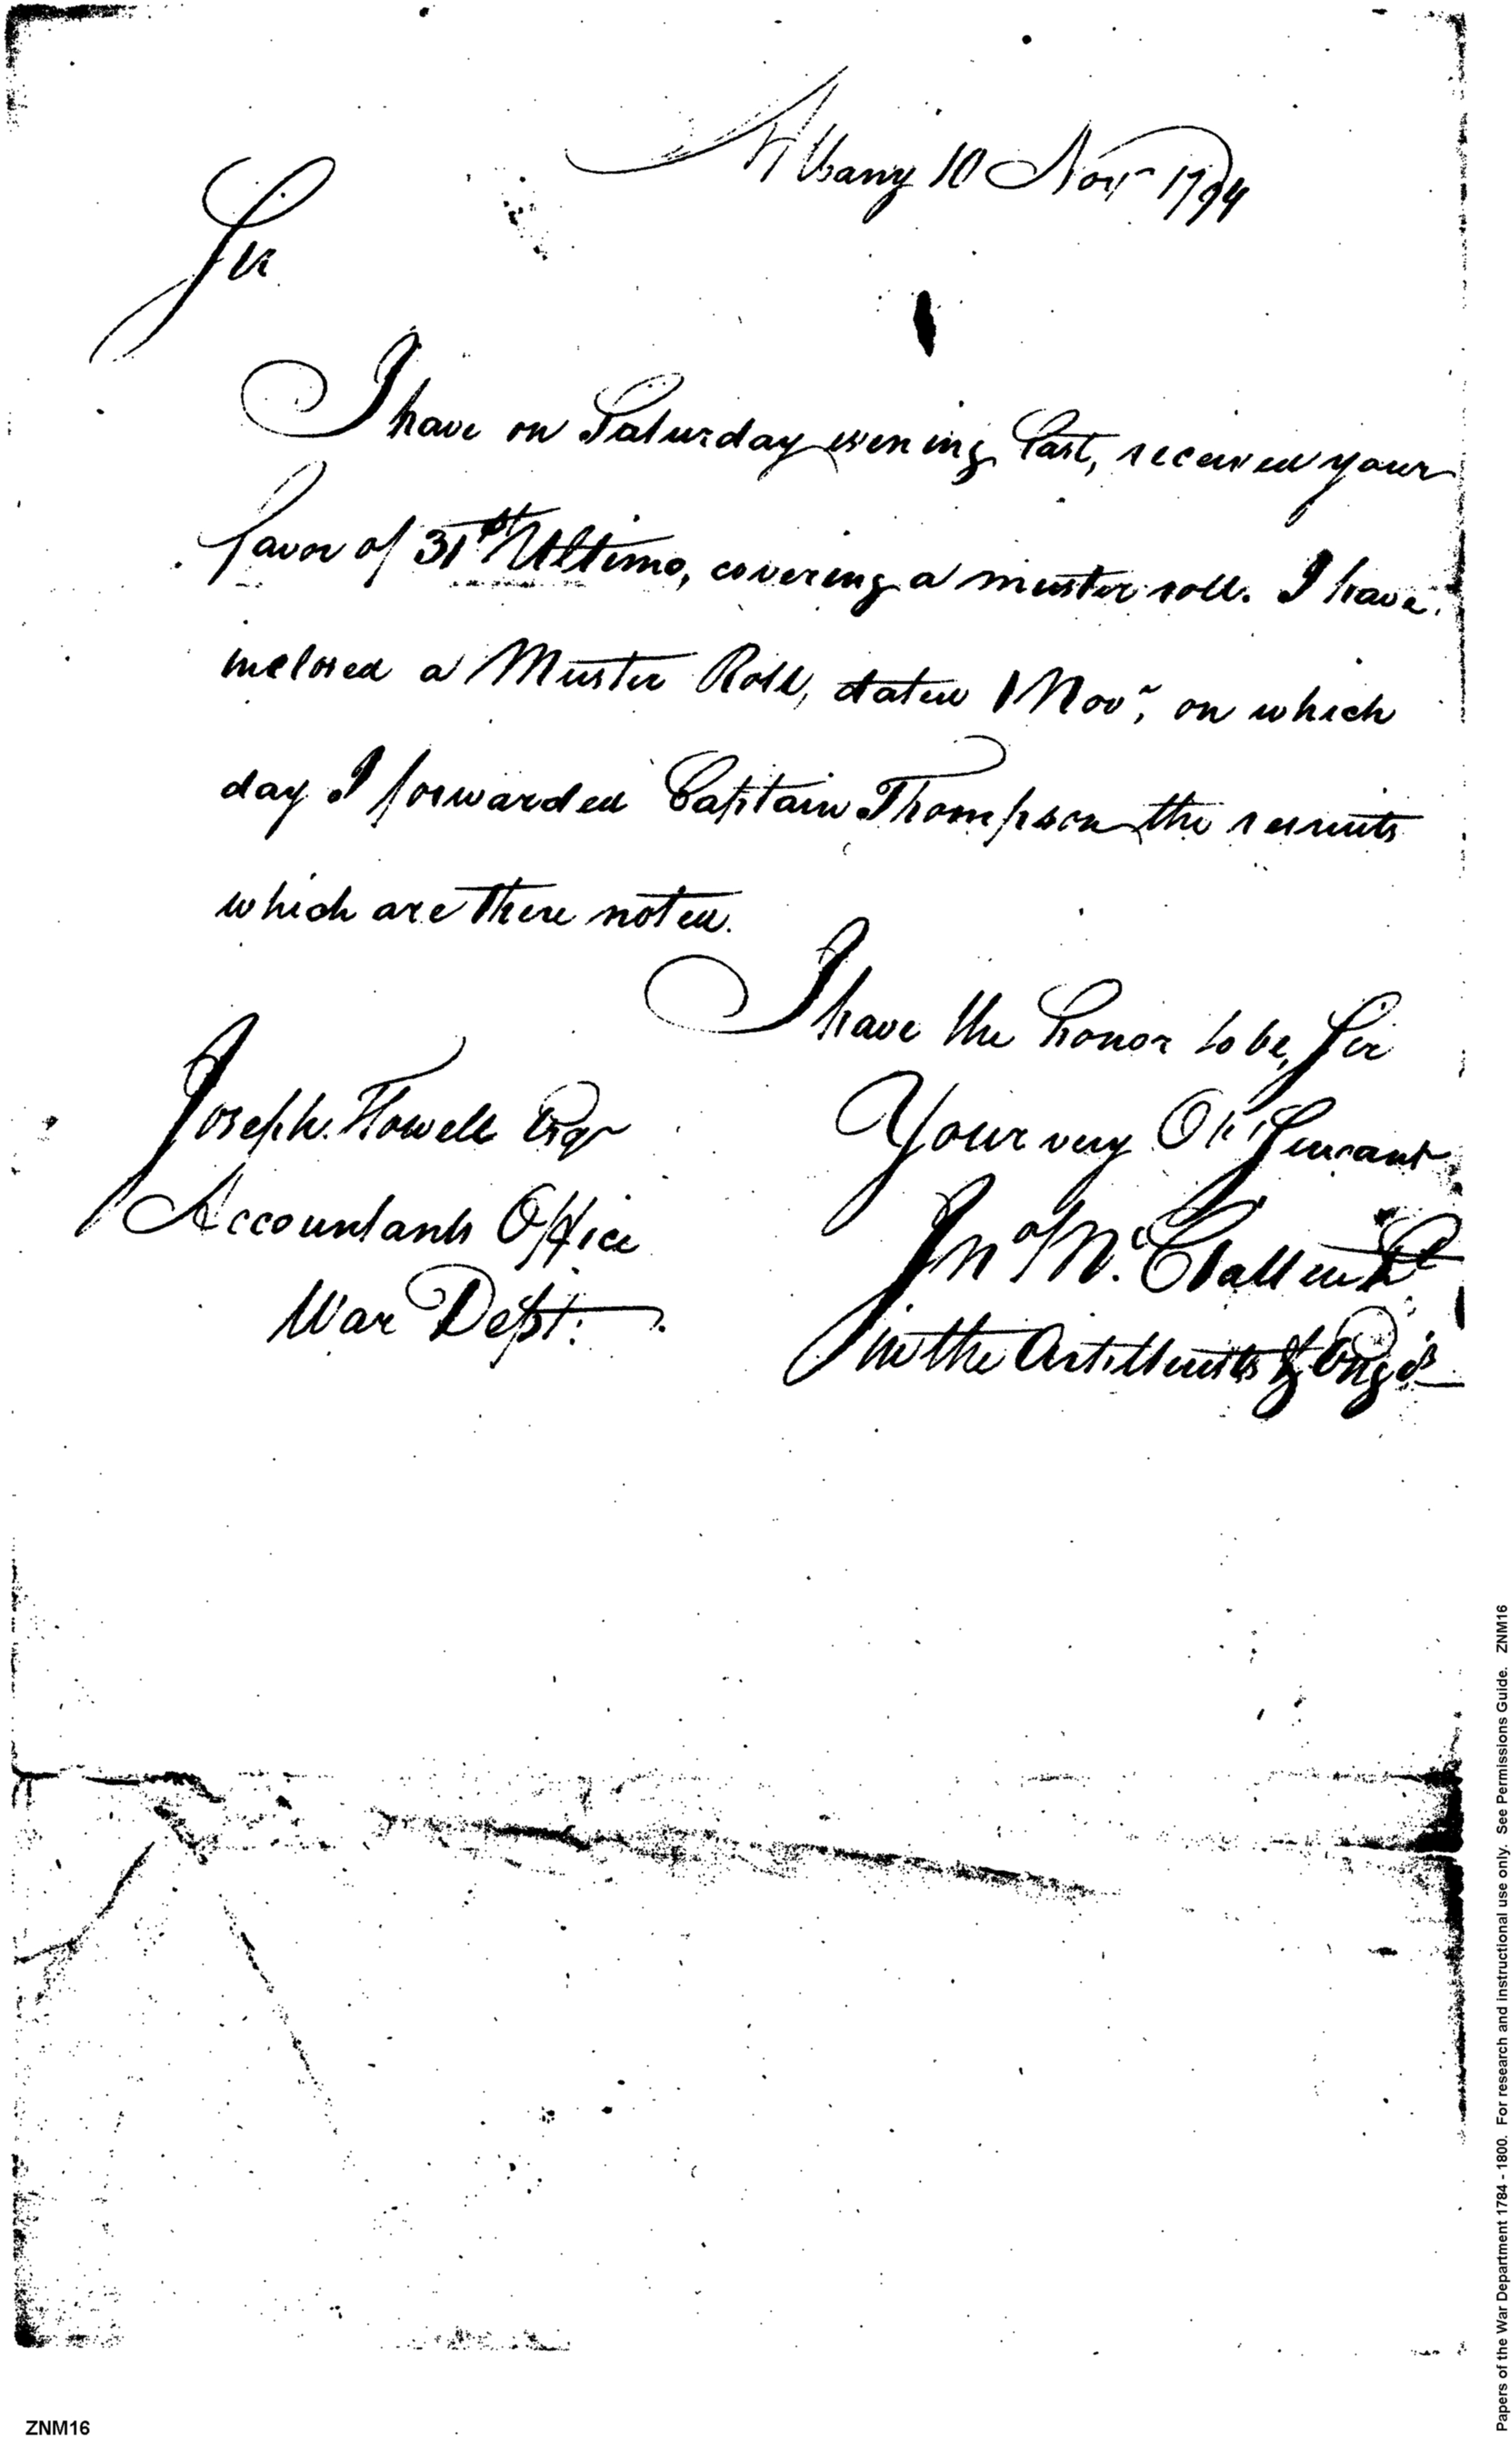 Albany 10 Novr 1794
Sir
I have on Saturday evening last, received your
favor of 31st Ultimo, covering a muster roll. I have
inclosed a Muster Roll, dated 1 Novr, on which
day I forwarded Captain Thompson the recruits
which are there noted.
I have the honor to be, Sir
Your very Ob Servant
Joseph Howell Esqr
Accountants Office
War Dept.
Jno McClallen Lt
in the Artillerists & Engrs
Papers of the War Department 1784 - 1800. For research and instructional use only. See Permissions Guide. ZNM16
ZNM16